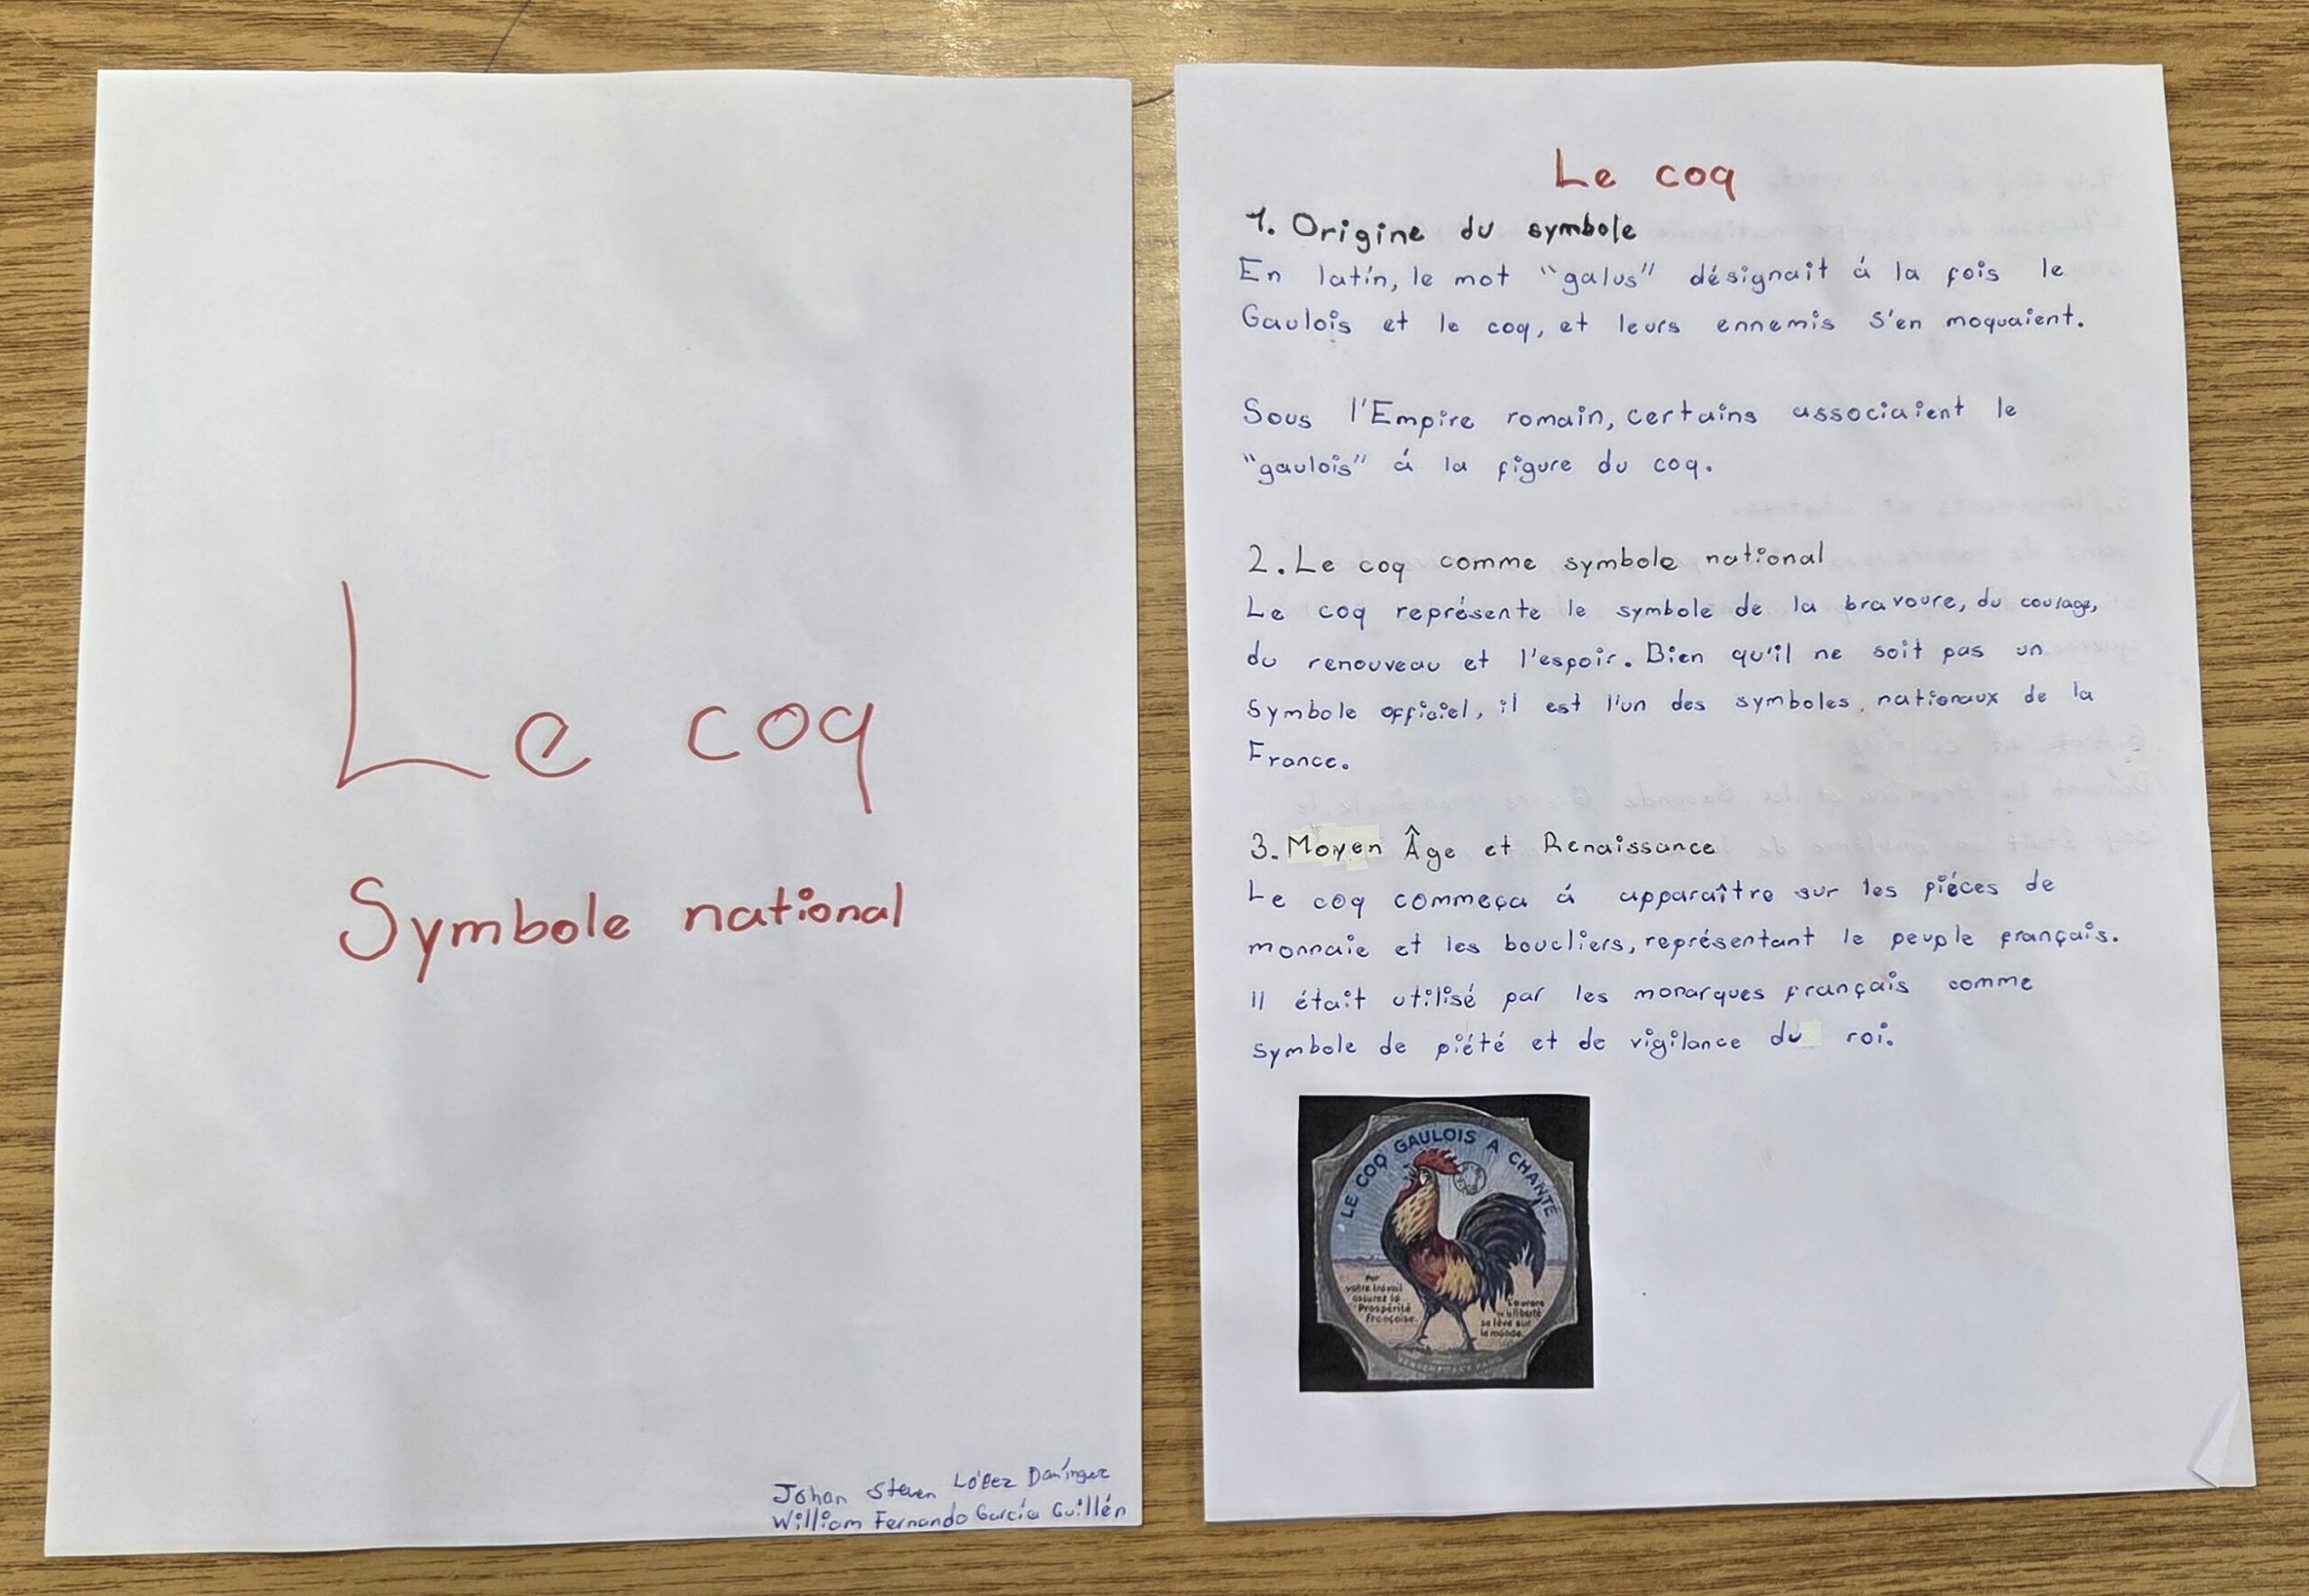 Le coq
Symbole national
Johan Steven López
William Fernando García Guillén
Le coq
1. Origine du symbole
En latín, le mot "galus" désignait á la fois le
Gaulois et le coq, et leurs ennemis s'en moquaient.
Sous l'Empire romain, certains associaient le
"gaulois" á la figure du coq.
2. Le coq comme symbole national
Le coq représente le symbole de la bravoure, du coulage,
du renouveau et l'espoir. Bien qu'il ne soit pas un
symbole officiel, il est l'un des symboles nationaux de la
France.
3. Moyen Âge et Renaissance
Le coq commeça á apparaître sur les piéces de
monnaie et les boucliers, représentant le peuple français.
Il était utilisé par les monarques français comme
symbole de piété et de vigilance du roi.
LE COQ GAULOIS A CHANTÉ
Par
votre travail
assurez la
Prospérité
Française.
L'aurore
de la liberté
se lève sur
le monde.